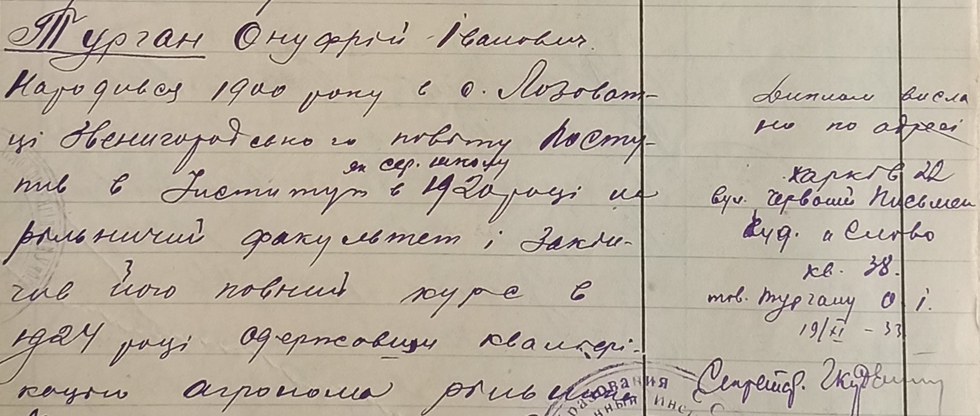 Турган Онуфрій Іванович.
Народився 1900 року в с. Лозоват-
ці Звенигородського повіту Посту-
як сер. школу
пив в Інститут в 1920 році на
рільничий факультет і закін-
чив його повний курс в
1924 році одержавши кваліфі-
кацію агронома рільника
Диплом висла
но по адресі
Харків 22
вул. Червоний Письмен
Буд. "Слово
кв. 38.
тов. Тургану О. І.
19/XI - 33
Секретар.
образования
инст